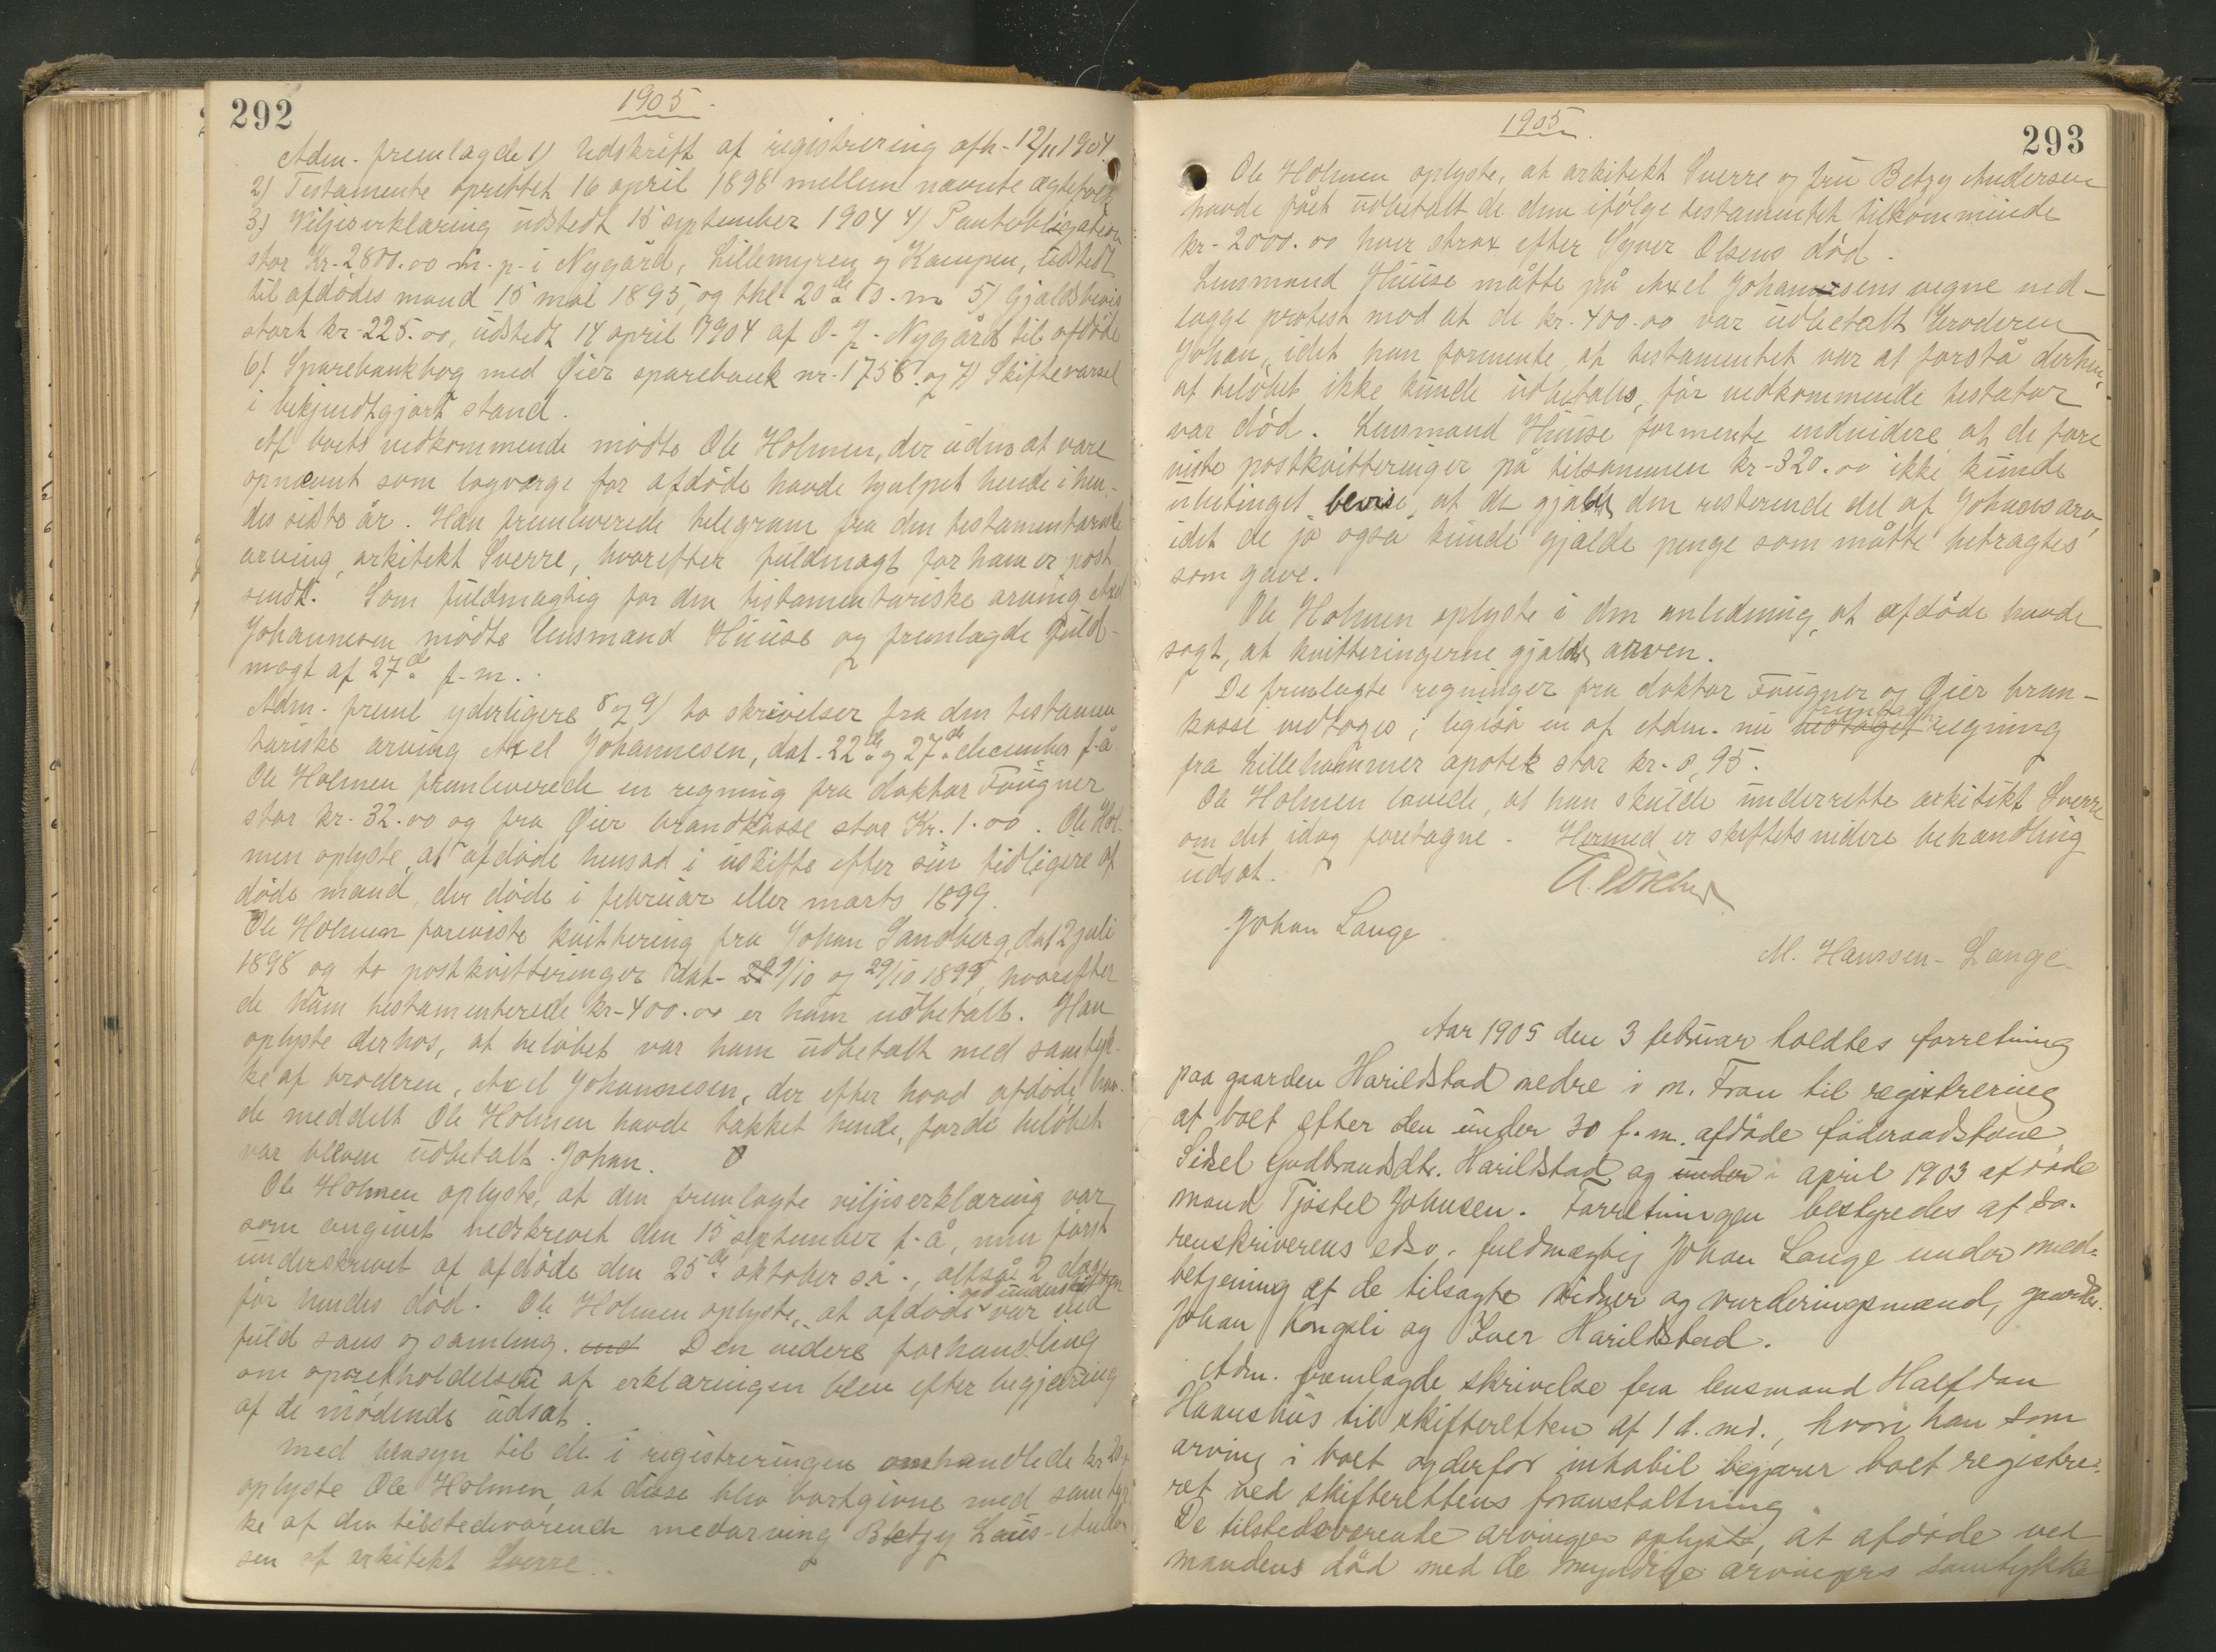 292
1905
Adm. fremlagde 1) Udskrift af registrering afh. 12/11 1904.
2) Testamente oprettet 16 april 1898 mellem nævnte ægtefolk
3) Viljeserklæring udstedt 15 september 1904 4) Pantobligation
stor Kr. 2800.00 m. p. i Nygård, Lillemyren og Kampen, udstedt
til afdødes mand 15 mai 1895, og thl. 20de s. m. 5) Gjældsbevis
stort kr. 225.00, udstedt 14 april 1904 af O. J. Nygård til afdøde
6) Sparebankbog med Øier sparebank nr. 1758 og 7) Skiftevarsel
i bekjendtgjort stand.
Af boets vedkommende mødte Ole Holmen, der uden at være
opnævnt som lagværge for afdøde havde hjulpet hende i hen-
des sidste år. Han fremleverede telegram fra den testamentariske
arving, arkitekt Sverre, hvorefter fuldmagt for ham er post
sendt. Som fuldmægtig for den testamentariske arving Axel
Johannesen mødte lensmand Huuse og fremlagde fuld-
magt af 27de f. m.
Adm. freml. yderligere 8 og 9) to skrivelser fra den testamen
tariske arving Axel Johannesen, dat. 22de og 27de december f. å.
Ole Holmen fremleverede en regning fra doktor Fougner
stor kr. 32.00 og fra Øier brandkasse stor Kr. 1.00. Ole Hol-
men oplyste, at afdøde hensad i uskifte efter sin tidligere af
døde mand, der døde i februar eller marts 1899.
Ole Holmen foreviste kvittering fra Johan Sandberg, dat 2 juli
1898 og to postkvitteringer dat. 9/10 og 29/10 1899, hvorefter
de ham testamenterede kr. 400.00 er ham udbetalt. Han
oplyste derhos, at beløbet var ham udbetalt med samtyk-
ke af broderen, Axel Johannesen, der efter hvad afdøde hav-
de meddelt Ole Holmen havde takket hende, fordi beløbet
var bleven udbetalt Johan.
Ole Holmen oplyste, at den fremlagte viljeserklæring var
som angivet nedskrevet den 15 september f. å., men først
underskrevet af afdøde den 25de oktober s. å., altså 2 dage
før hendes død. Ole Holmen oplyste, at afdøde ved underskriften var ved
fuld sans og samling. Den videre forhandling
om opretholdelsen af erklæringen blev efter begjæring
af de mødende udsat.
Med hensyn til de i registreringen omhandlede kr
oplyste Ole Holmen, at disse blev bortgivne med samtyk-
ke af den tilstedeværende medarving Betzy Laus-Ander
sen af arkitekt Sverre.
293
1905
Ole Holmen oplyste, at arkitekt Sverre og fru Betzy Andersen
havde fået udbetalt de dem ifølge testamentet tilkommende
kr. 2000.00 hver strax efter Syver Olsens død.
Lensmand Huuse måtte på Axel Johannesens vegne ned-
lægge protest mod at de kr. 400.00 var udbetalt broderen
Johan, idet han formente, at testamentet var at forstå derhen,
at beløbet ikke kunde udbetales, før vedkommende testator
var død. Lensmand Huuse formente endvidere at de fore
viste postkvitteringer på tilsammen kr. 320.00 ikke kunde
ubetinget bevise, at de gjaldt den resterende del af Johans arv,
idet de jo også kunde gjælde penge som måtte betragtes
som gave.
Ole Holmen oplyste i den anledning, at afdøde havde
sagt, at kvitteringerne gjaldt arven.
De fremlagte regninger fra doktor Fougner og Øier bran-
kasse vedtoges; ligeså en af Adm. nu fremlagt regning
fra Lillehammer apotek stor kr. 0,95.
Ole Holmen lovede, at han skulde underrette arkitekt Sverre
om det idag foretagne. Hermed er skiftets videre behandling
udsat.
Johan Lange
M. Hanssen-Lange.
Aar 1905 den 3 februar holdtes forretning
paa gaarden Harildstad nedre i n. Fron til registrering
af boet efter den under 30 f. m. afdøde føderaadskone
Sidsel Gudbrandsdtr. Harildstad og under i april 1903 afdøde
mand Tjøstel Johnsen. Forretningen bestyredes af so-
renskriverens edsv. fuldmægtig Johan Lange under med-
betjening af de tilsagte vidner og vurderingsmænd, gaardbr.
Johan Kongsli og Iver Harildstad.
Adm. fremlagde skrivelse fra lensmand Halfdan
Huushus til skifteretten af 1 d. md., hvori han som
arving i boet og derfor inhabil begjærer boet registre-
ret ved skifterettens foranstaltning.
De tilstedeværende arvinger oplyste, at afdøde ved
mandens død med de myndige arvingers samtykke